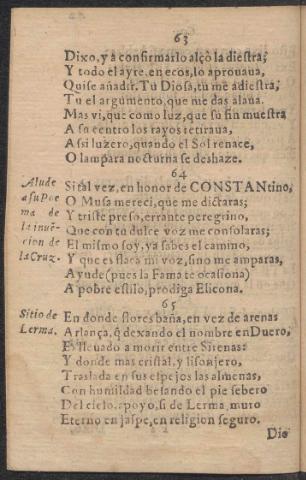 63
Dixo, y a confirmarlo alçò la diestra;
Y todo el ayre, en ecos, lo aprouaua,
Quise añadir. Tu Diosa, tu me adiestra,
Tu el argumento, que me das alaua.
Mas vi, que como luz, que su fin muestra
A su centro los rayos retiraua,
Assi luzero, quando el Sol renace,
O lampara nocturna se deshaze.
64
Alude
a su Poe
ma de
la inuē-
cion de
la Cruz.
Si tal vez, en honor de CONSTANtino,
O Musa mereci, que me dictaras;
Y triste preso, errante peregrino,
Que con tu dulce voz me consolaras;
El mismo soy, ya sabes el camino,
Y que es flaca mi voz, sino me amparas,
Ayude (pues la Fama te ocasiona)
A pobre estilo, prodiga Elicona.
65
Sitio de
Lerma.
En donde flores baña, en vez de arenas
Arlança, q̃ dexando el nombre en Duero,
Es lleuado a morir entre Sirenas:
Y donde mas cristal, y lisonjero,
Traslada en sus espejos las almenas,
Con humildad besando el pie sebero
Del cielo, apoyo, si de Lerma, muro
Eterno en jaspe, en religion seguro.
Dio